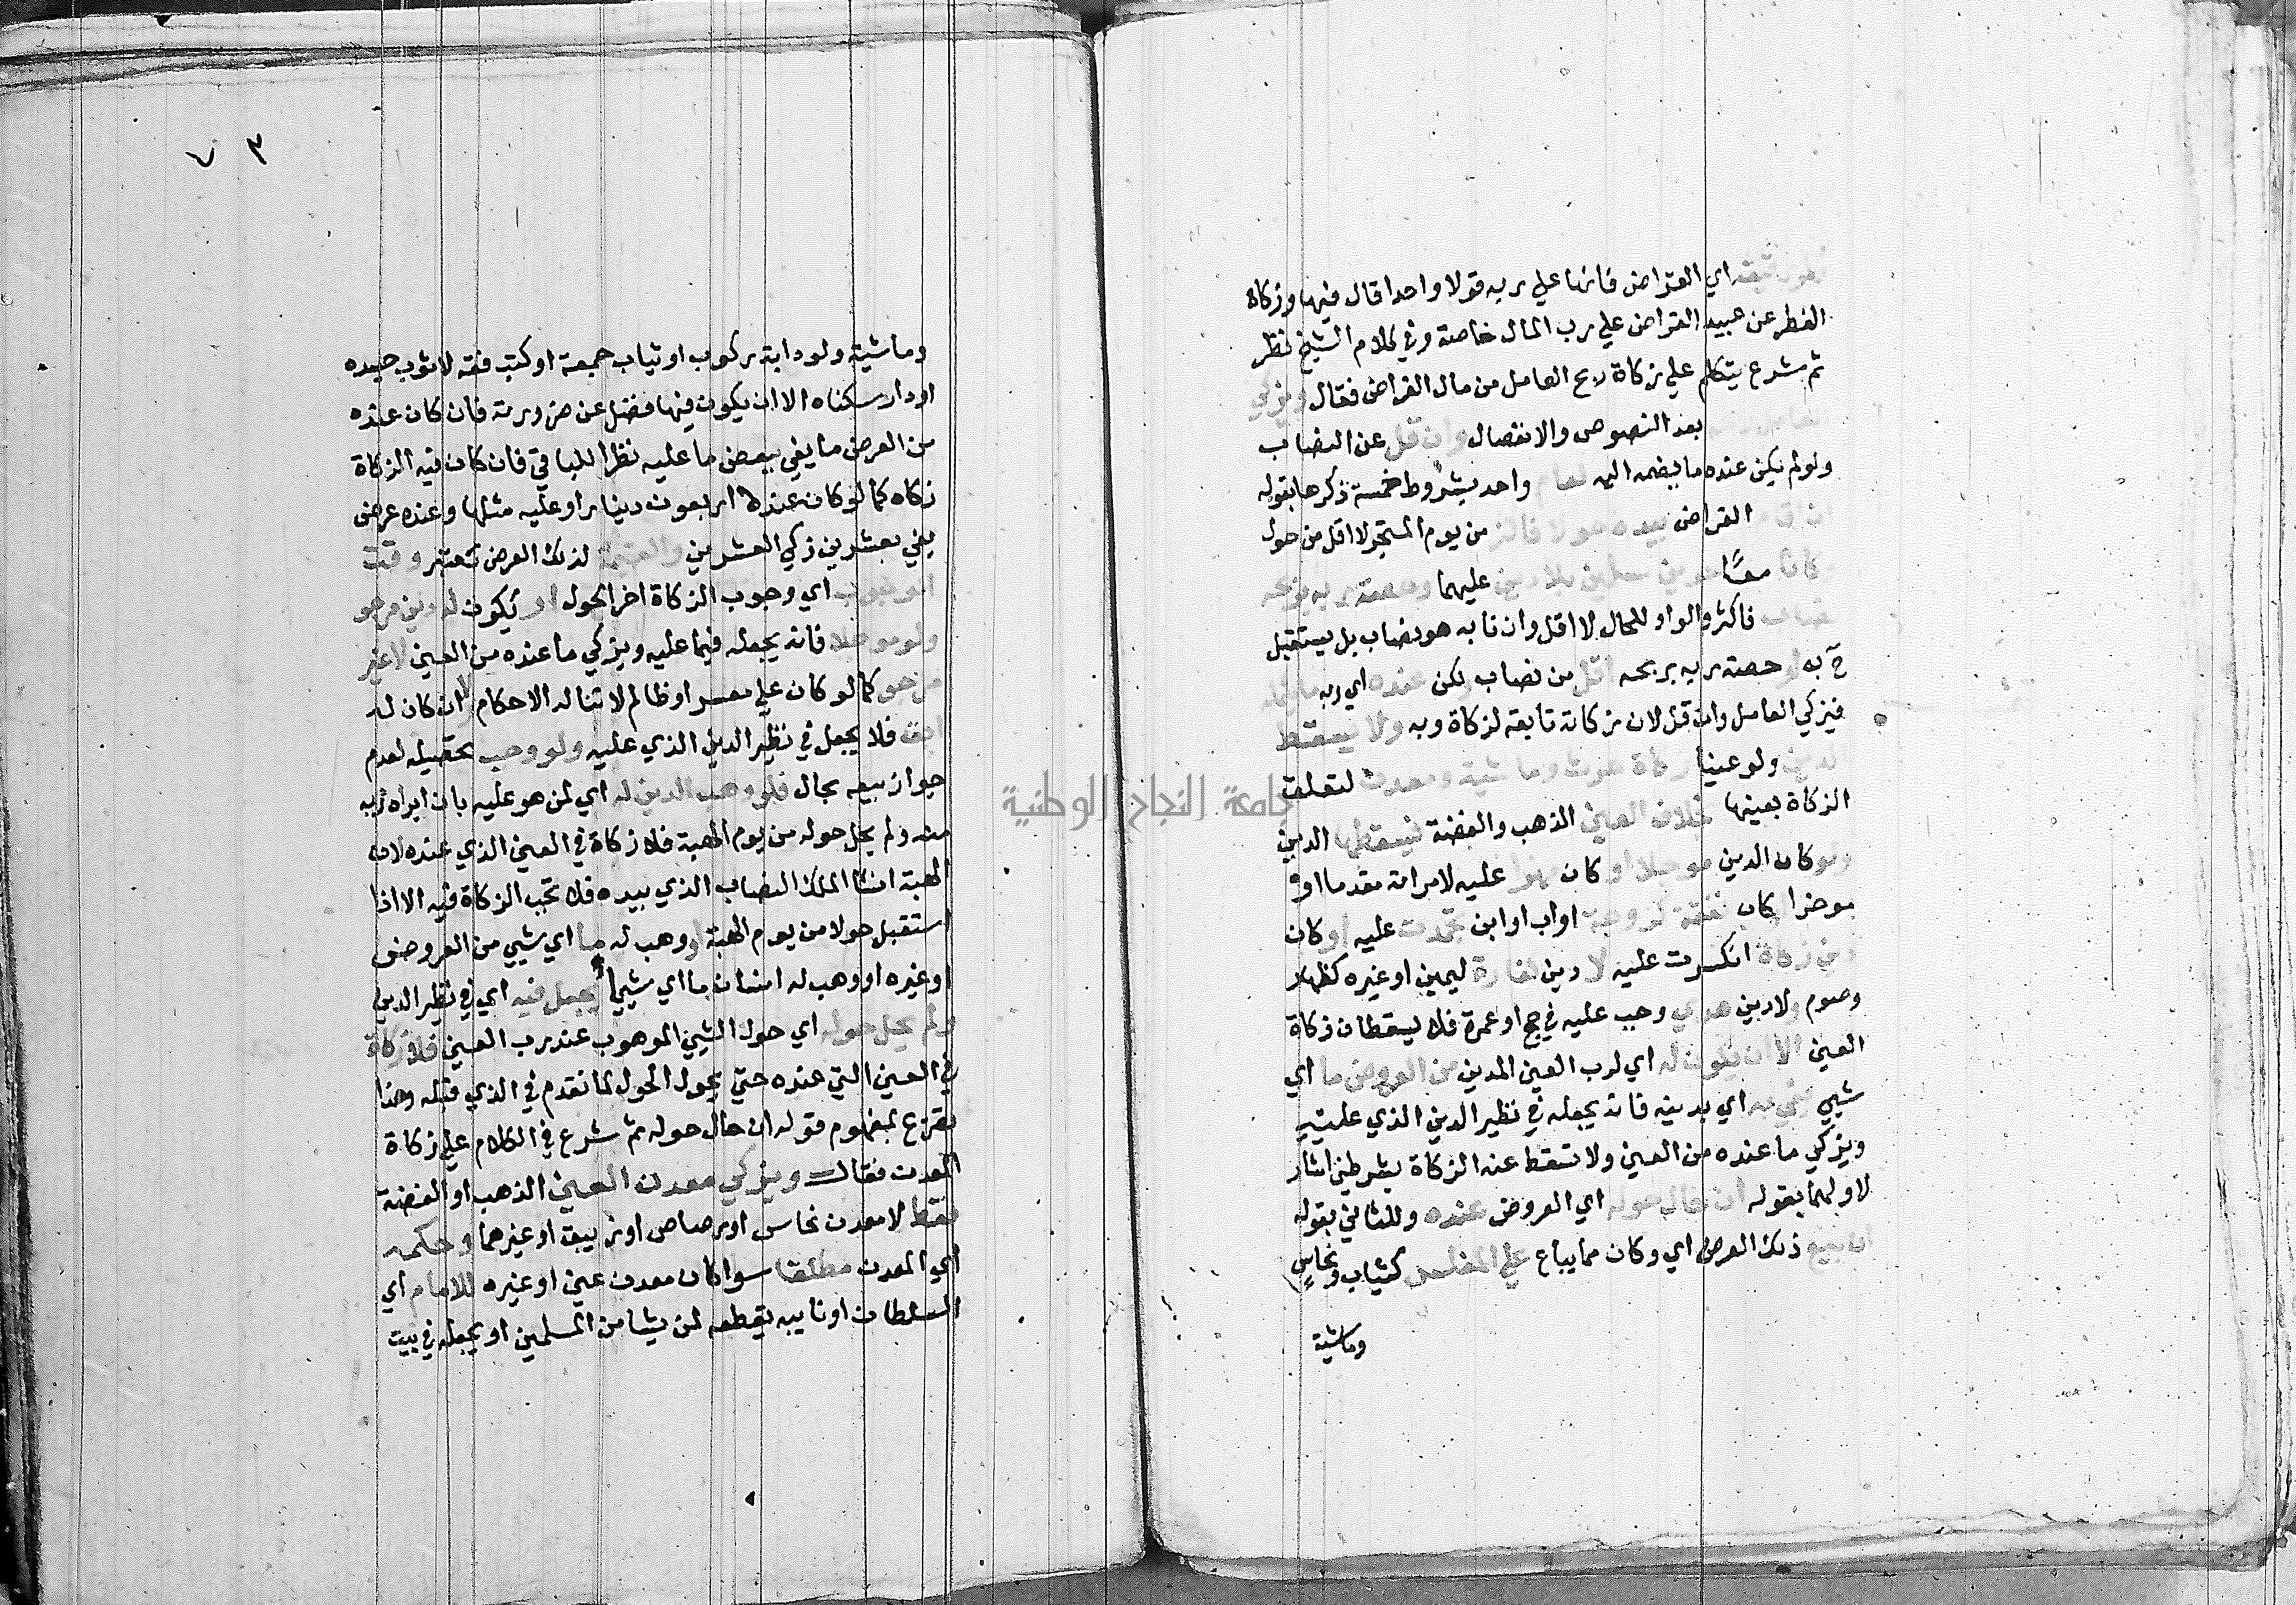 اي القراض فانها علي ربه قولا واحدا قال فيها وزكاة
الفطر عن عبيد القراض علي رب المال خاصة وفي كلام الشيخ نظر
ثم شرع يتكلم علي زكاة ربح العامل من مال القراض فقال ويزكي
بعد النصوص والانفصال وان قل عن النصاب
ولو لم يكن عنده ما يضمه اليه لعام واحد بشروط خمسة ذكرها بقوله
ان اقام القراض بيده حولا فاكثر من يوم المتجر لا اقل من حول
وكانا معا حرين مسلمين بلا دين عليهما وحصة ربه بربحه
نصاب فاكثر والواو للحال لا اقل وان نابه هو نصاب بل يستقبل
ح به او حصة ربه بربحه اقل من نصاب لكن عنده اي ربه ما
فيزكي العامل وان قل لان زكاته تابعة لزكاة ربه ولا يسقط
الدين ولو عينا زكاة حرث وماشية ومعدن لتعلق
الزكاة بعينها بخلاف العين الذهب والفضة فيسقطها الدين
ولو كان الدين موجلا او كان مهرا عليه لامراته مقدما او
موخرا كان نفقة لزوجة او اب او ابن تجمدت عليه او كان
دين زكاة انكسرت عليه لا دين كفارة ليمين او غيره كظهار
وصوم ولا دين هدي وجب عليه في حج او عمرة فلا يسقطان زكاة
العين الا ان يكون له اي لرب العين المدين من العروض ما اي
شيي يفي به اي بدينه فانه يجعله في نظير الدين الذي عليه
ويزكي ما عنده من العين ولا تسقط عنه الزكاة بشرطين اشار
لاولهما بقوله ان حال حوله اي العروض عنده وللثاني بقوله
ان بيع ذلك العرض اي وكان مما يباع علي المفلس كثياب ونحاس
وماشية
٧٣
وماشية ولو دابة ركوب او ثياب جمعة او كتب فقه لا ثوب جسده
او دار سكناه الا ان يكون فيها فضل عن ضرورته فان كان عنده
من العرض ما يفي ببعض ما عليه نظر للباقي فان كان فيه الزكاة
زكاه كما لو كان عنده اربعون دينارا وعليه مثلها وعنده عرض
يفي بعشرين زكي العشرين والقيمة لذلك العرض تعتبر وقت
الوجوب اي وجوب الزكاة اخر الحول او يكون له دين مرجو
ولو موجلا فانه يجعله فيما عليه ويزكي ما عنده من العين لا غير
مرجو كما لو كان علي معسر او ظالم لا تناله الاحكام او ان كان له
ابق فلا يجعل في نظير الدين الذي عليه ولو وجب تحصيله لعدم
جواز بيعه بحال فلو وهب الدين له اي لمن هو عليه بان ابراه ربه
منه ولم يحل حوله من يوم الهبة فلا زكاة في العين الذي عنده لان
الهبة انشا الملك النصاب الذي بيده فلا تجب الزكاة فيه الا اذا
استقبل حولا من يوم الهبة او وهب له ما اي شيي من العروض
او غيره او وهب له انسان ما اي شييا يجعل فيه اي في نظير الدين
ولم يحل حوله اي حول الشيي الموهوب عند رب العين فلا زكاة
في العين التي عنده حتي يحول الحول لما تقدم في الذي قبله وهذا
تفريع لمفهوم قوله ان حال حوله ثم شرع في الكلام علي زكاة
المعدن فقال ويزكي معدن العين الذهب او الفضة
فقط لا معدن نحاس او رصاص او زيبق او غيرهما وحكمه
اي المعدن مطلقا سوا كان معدن عين او غيره للامام اي
السلطان او نايبه يقطعه لمن يشا من المسلمين او يجعله في بيت
جامعة النجاح الوطنية